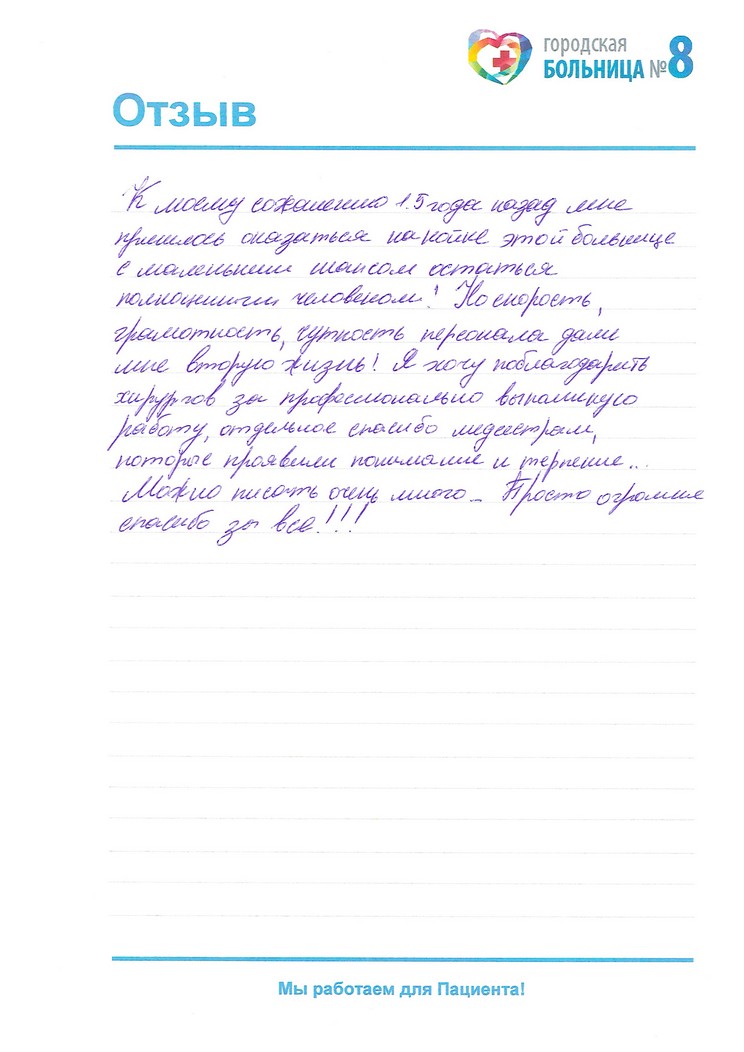 городская
БОЛЬНИЦА №8
Отзыв
К моему сожалению 1.5 года назад мне
пришлось оказаться на койке этой больнице
с маленьким шансом остаться
полноценным человеком! Но скорость,
грамотность, чуткость персонала дали
мне вторую жизнь! Я хочу поблагодарить
хирургов за профессионально выполнную
работу, отдельное спасибо медсестрам,
которые проявили понимание и терпение...
Можно писать очень много... Просто огромное
спасибо за все!!!
Мы работаем для Пациента!